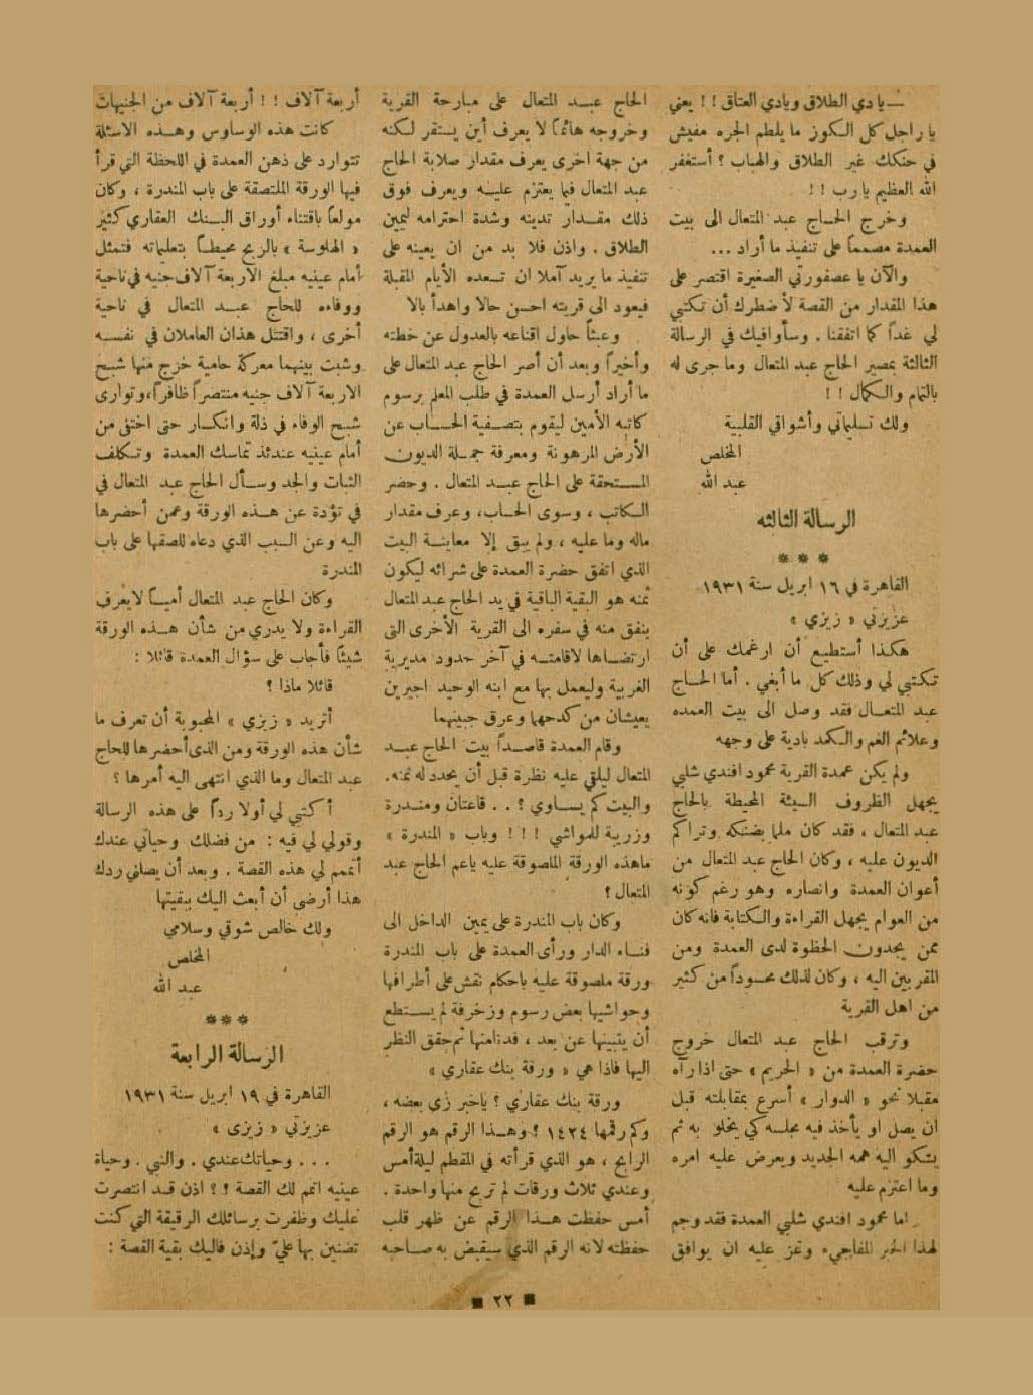 — يا دي الطلاق ويادي العتاق !! يعني
يا راجل كل الكوز ما يلطم الجره مفيش
في حنكك غير الطلاق والهباب ؟ أستغفر
الله العظيم يا رب !!
وخرج الحاج عبد المتعال الى بيت
العمدة مصمماً على تنفيذ ما أراد ...
والآن يا عصفورتي الصغيرة اقتصر على
هذا المقدار من القصة لأضطرك أن تكتبي
لي غداً كما اتفقنا . وسأوافيك في الرسالة
الثالثة بمصير الحاج عبد المتعال وما جرى له
بالتمام والكمال !!
ولك تسليماتي وأشواقي القلبية
المخلص
عبد الله
الرسالة الثالثه
***
القاهرة في ١٦ ابريل سنة ١٩٣١
عزيزتي « زيزي »
هكذا أستطيع أن ارغمك على أن
تكتبي لي وذلك كل ما أبغي . أما الحاج
عبد المتعال فقد وصل الى بيت العمده
وعلائم الغم والكمد بادية على وجهه
ولم يكن عمدة القرية محمود افندي شلبي
يجهل الظروف السيئة المحيطة بالحاج
عبد المتعال ، فقد كان ملما بضنكه وتراكم
الديون عليه ، وكان الحاج عبد المتعال من
أعوان العمدة وانصاره وهو رغم كونه
من العوام يجهل القراءة والكتابة فانه كان
ممن يجدون الحظوة لدى العمدة ومن
المقربين اليه ، وكان لذلك محسوداً من كثير
من اهل القرية
وترقب الحاج عبد المتعال خروج
حضرة العمدة من « الحريم » حتى اذا رآه
مقبلا نحو « الدوار » أسرع بمقابلته قبل
ان يصل او يأخذ فيه مجلسه كي يخلو به ثم
يشكو اليه همه الجديد ويعرض عليه امره
وما اعتزم عليه
اما محمود افندي شلبي العمدة فقد وجم
لهذا الخبر المفاجيء وعز عليه ان يوافق
الحاج عبد المتعال على مبارحة القرية
وخروجه هائماً لا يعرف أين يستقر لكنه
من جهة اخرى يعرف مقدار صلابة الحاج
عبد المتعال فيما يعتزم عليه ويعرف فوق
ذلك مقدار تدينه وشدة احترامه ليمين
الطلاق . واذن فلا بد من ان يعينه على
تنفيذ ما يريد آملا ان تسعده الأيام المقبلة
فيعود الى قريته احسن حالا واهدأ بالا
وعبثاً حاول اقناعه بالعدول عن خطته
وأخيراً وبعد أن أصر الحاج عبد المتعال على
ما أراد أرسل العمدة في طلب المعلم برسوم
كاتبه الأمين ليقوم بتصفية الحساب عن
الأرض المرهونة ومعرفة جملة الديون
المستحقة على الحاج عبد المتعال . وحضر
الكاتب ، وسوى الحساب، وعرف مقدار
ماله وما عليه ، ولم يبق إلا معاينة البيت
الذي اتفق حضرة العمدة على شرائه ليكون
ثمنه هو البقية الباقية في يد الحاج عبد المتعال
ينفق منه في سفره الى القرية الأخرى التى
ارتضاها لاقامته في آخر حدود مديرية
الغربية وليعمل بها مع ابنه الوحيد اجيرين
يعيشان من كدحهما وعرق جبينهما
وقام العمدة قاصداً بيت الحاج عبد
المتعال ليلقي عليه نظرة قبل أن يحدد له ثمنه.
والبيت كم يساوي ؟ .. قاعتان ومندرة
وزريبة للمواشي !!! وباب « المندرة »
ماهذه الورقة الملصوقة عليه ياعم الحاج عبد
المتعال ؟
وكان باب المندرة على يمين الداخل الى
فناء الدار ورأى العمدة على باب المندرة
ورقة ملصوقة عليه باحكام نقش على أطرافها
وحواشيها بعض رسوم وزخرفة لم يستطع
أن يتبينها عن بعد ، فدنامنها ثم حقق النظر
اليها فاذا هي « ورقة بنك عقاري »
ورقة بنك عقاري ؟ ياخبر زي بعضه ،
وكم رقمها ١٤٢٤ ؟ وهذا الرقم هو الرقم
الرابح ، هو الذي قرأته في المقطم ليلة أمس
وعندي ثلاث ورقات لم تربح منها واحدة .
أمس حفظت هذا الرقم عن ظهر قلب
حفظته لانه الرقم الذي سيقبض به صاحبه
أربعة آلاف !! أربعة آلاف من الجنيهات
كانت هذه الوساوس وهذه الاسئلة
تتوارد على ذهن العمدة في اللحظة التي قرأ
فيها الورقة الملتصقة على باب المندرة ، وكان
مولعاً باقتناء أوراق البنك العقاري كثير
« الهلوسة » بالربح محيطاً بتعليماته فتمثل
أمام عينيه مبلغ الاربعة آلاف جنيه في ناحية
ووفاءه للحاج عبد المتعال في ناحية
أخرى ، واقتتل هذان العاملان في نفسه
وشبت بينهما معركة حامية خرج منها شبح
الاربعة آلاف جنيه منتصراً ظافراً، وتوارى
شبح الوفاء في ذلة وانكسار حتى اختفى من
أمام عينيه عندئذ تماسك العمدة وتكلف
الثبات والجد وسأل الحاج عبد المتعال في
في تؤدة عن هذه الورقة وعمن أحضرها
اليه وعن السبب الذي دعاه للصقها على باب
المندرة
وكان الحاج عبد المتعال أمياً لايعرف
القراءة ولا يدري من شأن هذه الورقة
شيئاً فأجاب على سؤال العمدة قائلا :
قائلا ماذا ؟
أتريد « زيزي » المحبوبة أن تعرف ما
شأن هذه الورقة ومن الذى أحضرها للحاج
عبد المتعال وما الذي انتهى اليه أمرها ؟
أكتبي لي أولا رداً على هذه الرسالة
وقولي لي فيه : من فضلك وحياتي عندك
أتمم لي هذه القصة . وبعد أن يصلني ردك
هذا أرضى أن أبعث اليك ببقيتها
ولك خالص شوقي وسلامي
المخلص
عبد الله
***
الرسالة الرابعة
القاهرة في ١٩ ابريل سنة ١٩٣١
عزيزتي « زيزى »
... وحياتك عندي . والنبي . وحياة
عينيه اتمم لك القصة !؟ اذن قد انتصرت
عليك وظفرت برسائلك الرقيقة التي كنت
تضنين بها عليّ وإذن فاليك بقية القصة :
■ ٢٢ ■